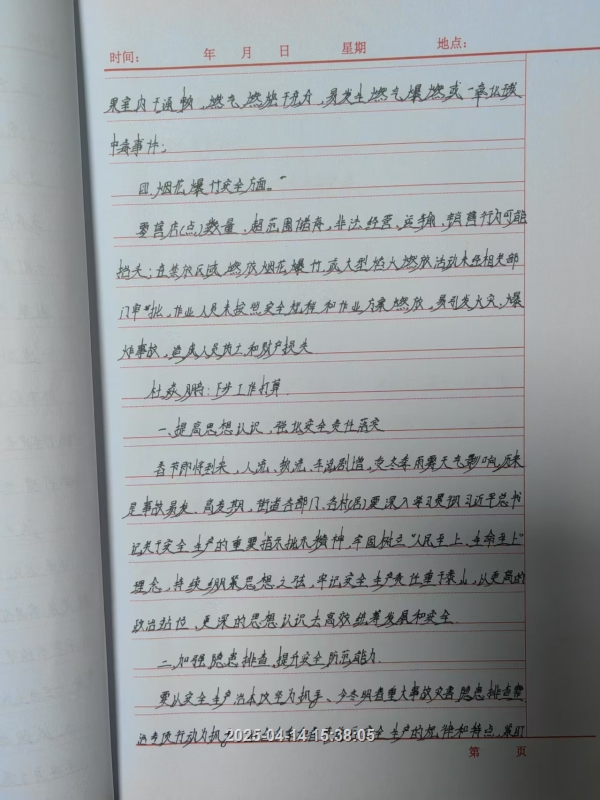 时间： 年 月 日 星期 地点：
果室内不通畅，燃气燃烧不充分，易发生燃气爆燃或一氧化碳
中毒事件；
四、烟花爆竹安全方面。
零售店(点)数量、超范围储存，非法经营、运输、销售行为可能
抬头；在禁放区域燃放烟花爆竹或大型焰火燃放活动未经相关部
门审批，作业人员未按照安全规程和作业方案燃放，易引发火灾、爆
炸事故，造成人员伤亡和财产损失
杜 鹏：下步工作打算
一、提高思想认识，强化安全责任落实
春节即将到来，人流、物流、车流剧增，受冬季雨雾天气影响，历来
是事故易发、高发期，街道各部门、各村(居)要深入学习贯彻习近平总书
记关于安全生产的重要指示批示精神，牢固树立“人民至上、生命至上”
理念，持续绷紧思想之弦，牢记安全生产责任重于泰山，以更高的
政治站位、更深的思想认识去高效统筹发展和安全
二、加强隐患排查，提升安全防范能力
要以安全生产治本攻坚为抓手、今冬明春重大事故灾害隐患排查整
治专项行动为抓 安全生产的规律和特点，紧盯
2025-04-14 15:38:05
第 页